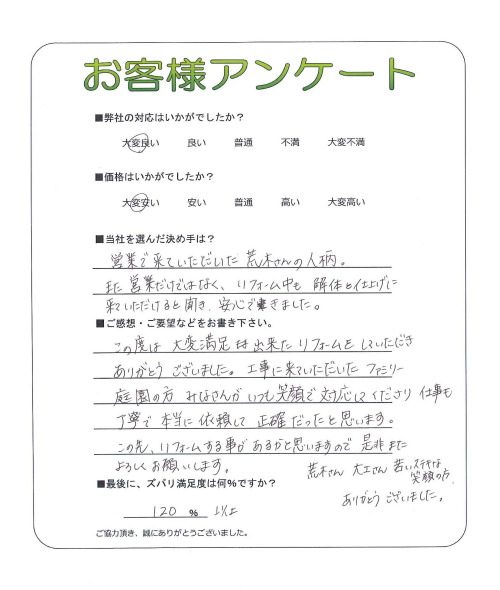 お客様アンケート
■弊社の対応はいかがでしたか？
大変良い 良い 普通 不満 大変不満
■価格はいかがでしたか？
大変安い 安い 普通 高い 大変高い
■当社を選んだ決め手は？
営業で来ていただいた 荒木さんの人柄。
また営業だけではなく、リフォーム中も 解体と仕上げに
来ていただけると聞き、安心できました。
■ご感想・ご要望などをお書き下さい。
この度は 大変満足 出来た リフォームをしていただき
ありがとう ございました。工事に来ていただいた ファミリー
庭園の方 みなさんが いつも笑顔で 対応してくださり 仕事も
丁寧で 本当に 依頼して 正確だったと思います。
この先、リフォームする事が あるかと思いますので 是非また
よろしく お願いします。
荒木さん 大工さん 若いステキな
笑顔の方
ありがとう ございました。
■最後に、ズバリ満足度は何％ですか？
120 ％ 以上
ご協力頂き、誠にありがとうございました。